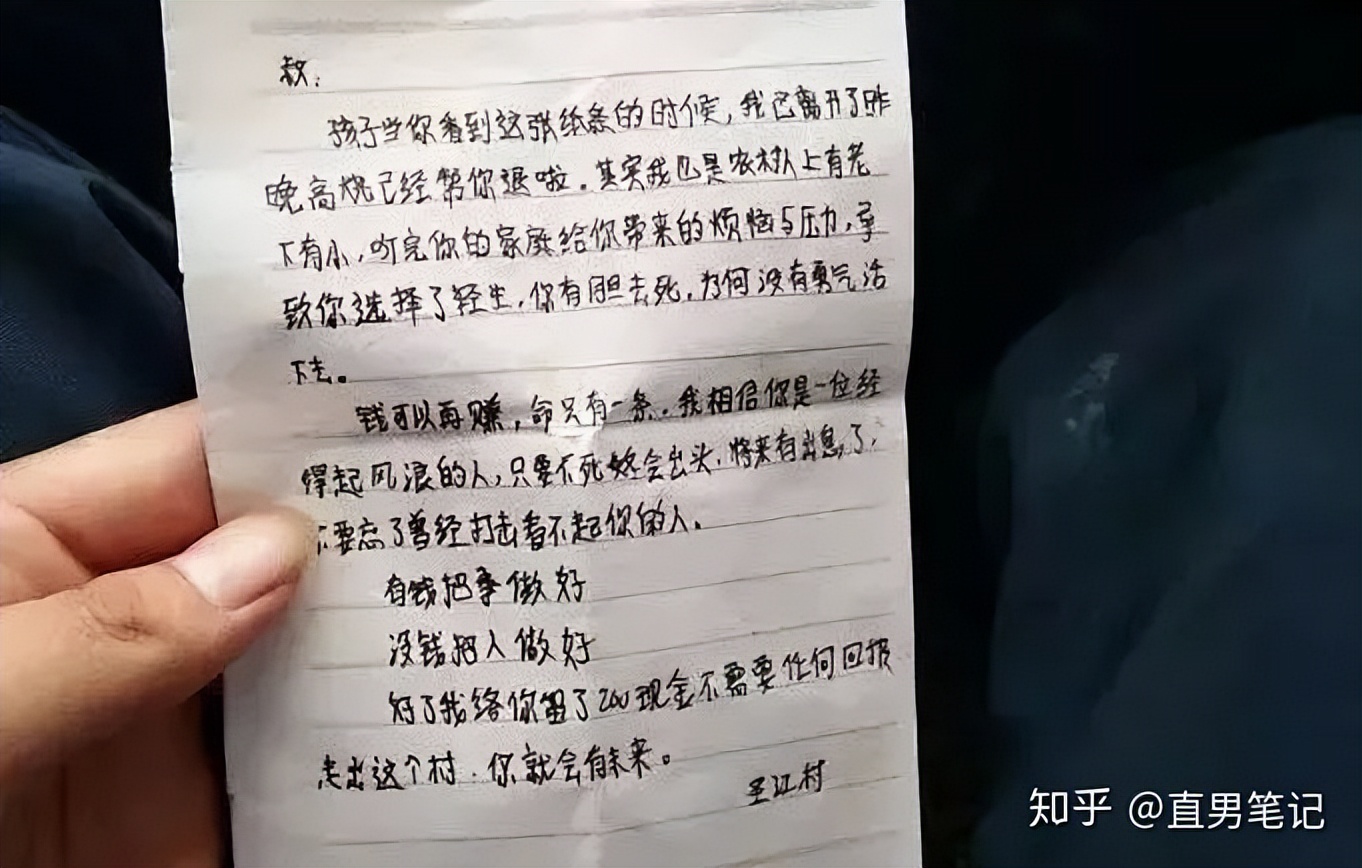 叔：
孩子当你看到这张纸条的时候，我已离开了昨
晚高烧已经帮你退啦。其实我也是农村人上有老
下有小，听完你的家庭给你带来的烦恼与压力，
致你选择了轻生，你有胆去死，为何没有勇气活
下去。
钱可以再赚，命只有一条。我相信你是一位经
得起风浪的人，只要不死终会出头，将来有出息了，
不要忘了曾经打击看不起你的人。
有钱把事做好
没钱把人做好
好了我给你留了200现金不需要任何回报
走出这个村，你就会有未来。
江村
知乎 @直男笔记